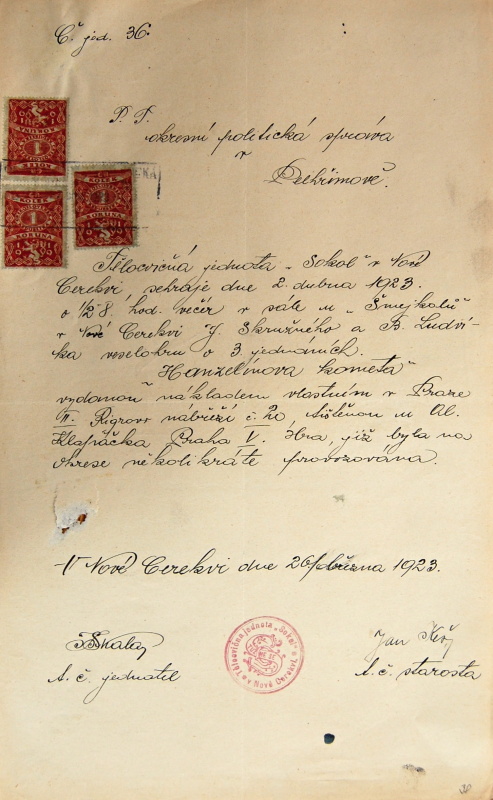 Č. jed. 36.
P. T.
okresní politická správa
v
Pelhřimově.
KOLEK
1
KORUNA
KOLEK
1
KORUNA
KOLEK
1
KORUNA
Tělocvičná jednota „Sokol" v Nové
Cerekvi, sehraje dne 2. dubna 1923
o 1/2 8 hod. večer v sále u „Šmejkalů"
v Nové Cerekvi J. Skružného a B. Ludví-
ka veselohru o 3. jednáních.
„Hanzelínova kometa"
vydanou nákladem vlastním v Praze
II. Rigrovo nábřeží č. 20, tištěnou u Al.
Klapáčka Praha V. Hra, již byla na
okrese několikráte provozována.
V Nové Cerekvi dne 26/ března 1923.
t. č. jednatel
Jan
t. č. starosta
Tělocvičná jednota „Sokol" v Nové Cerekvi